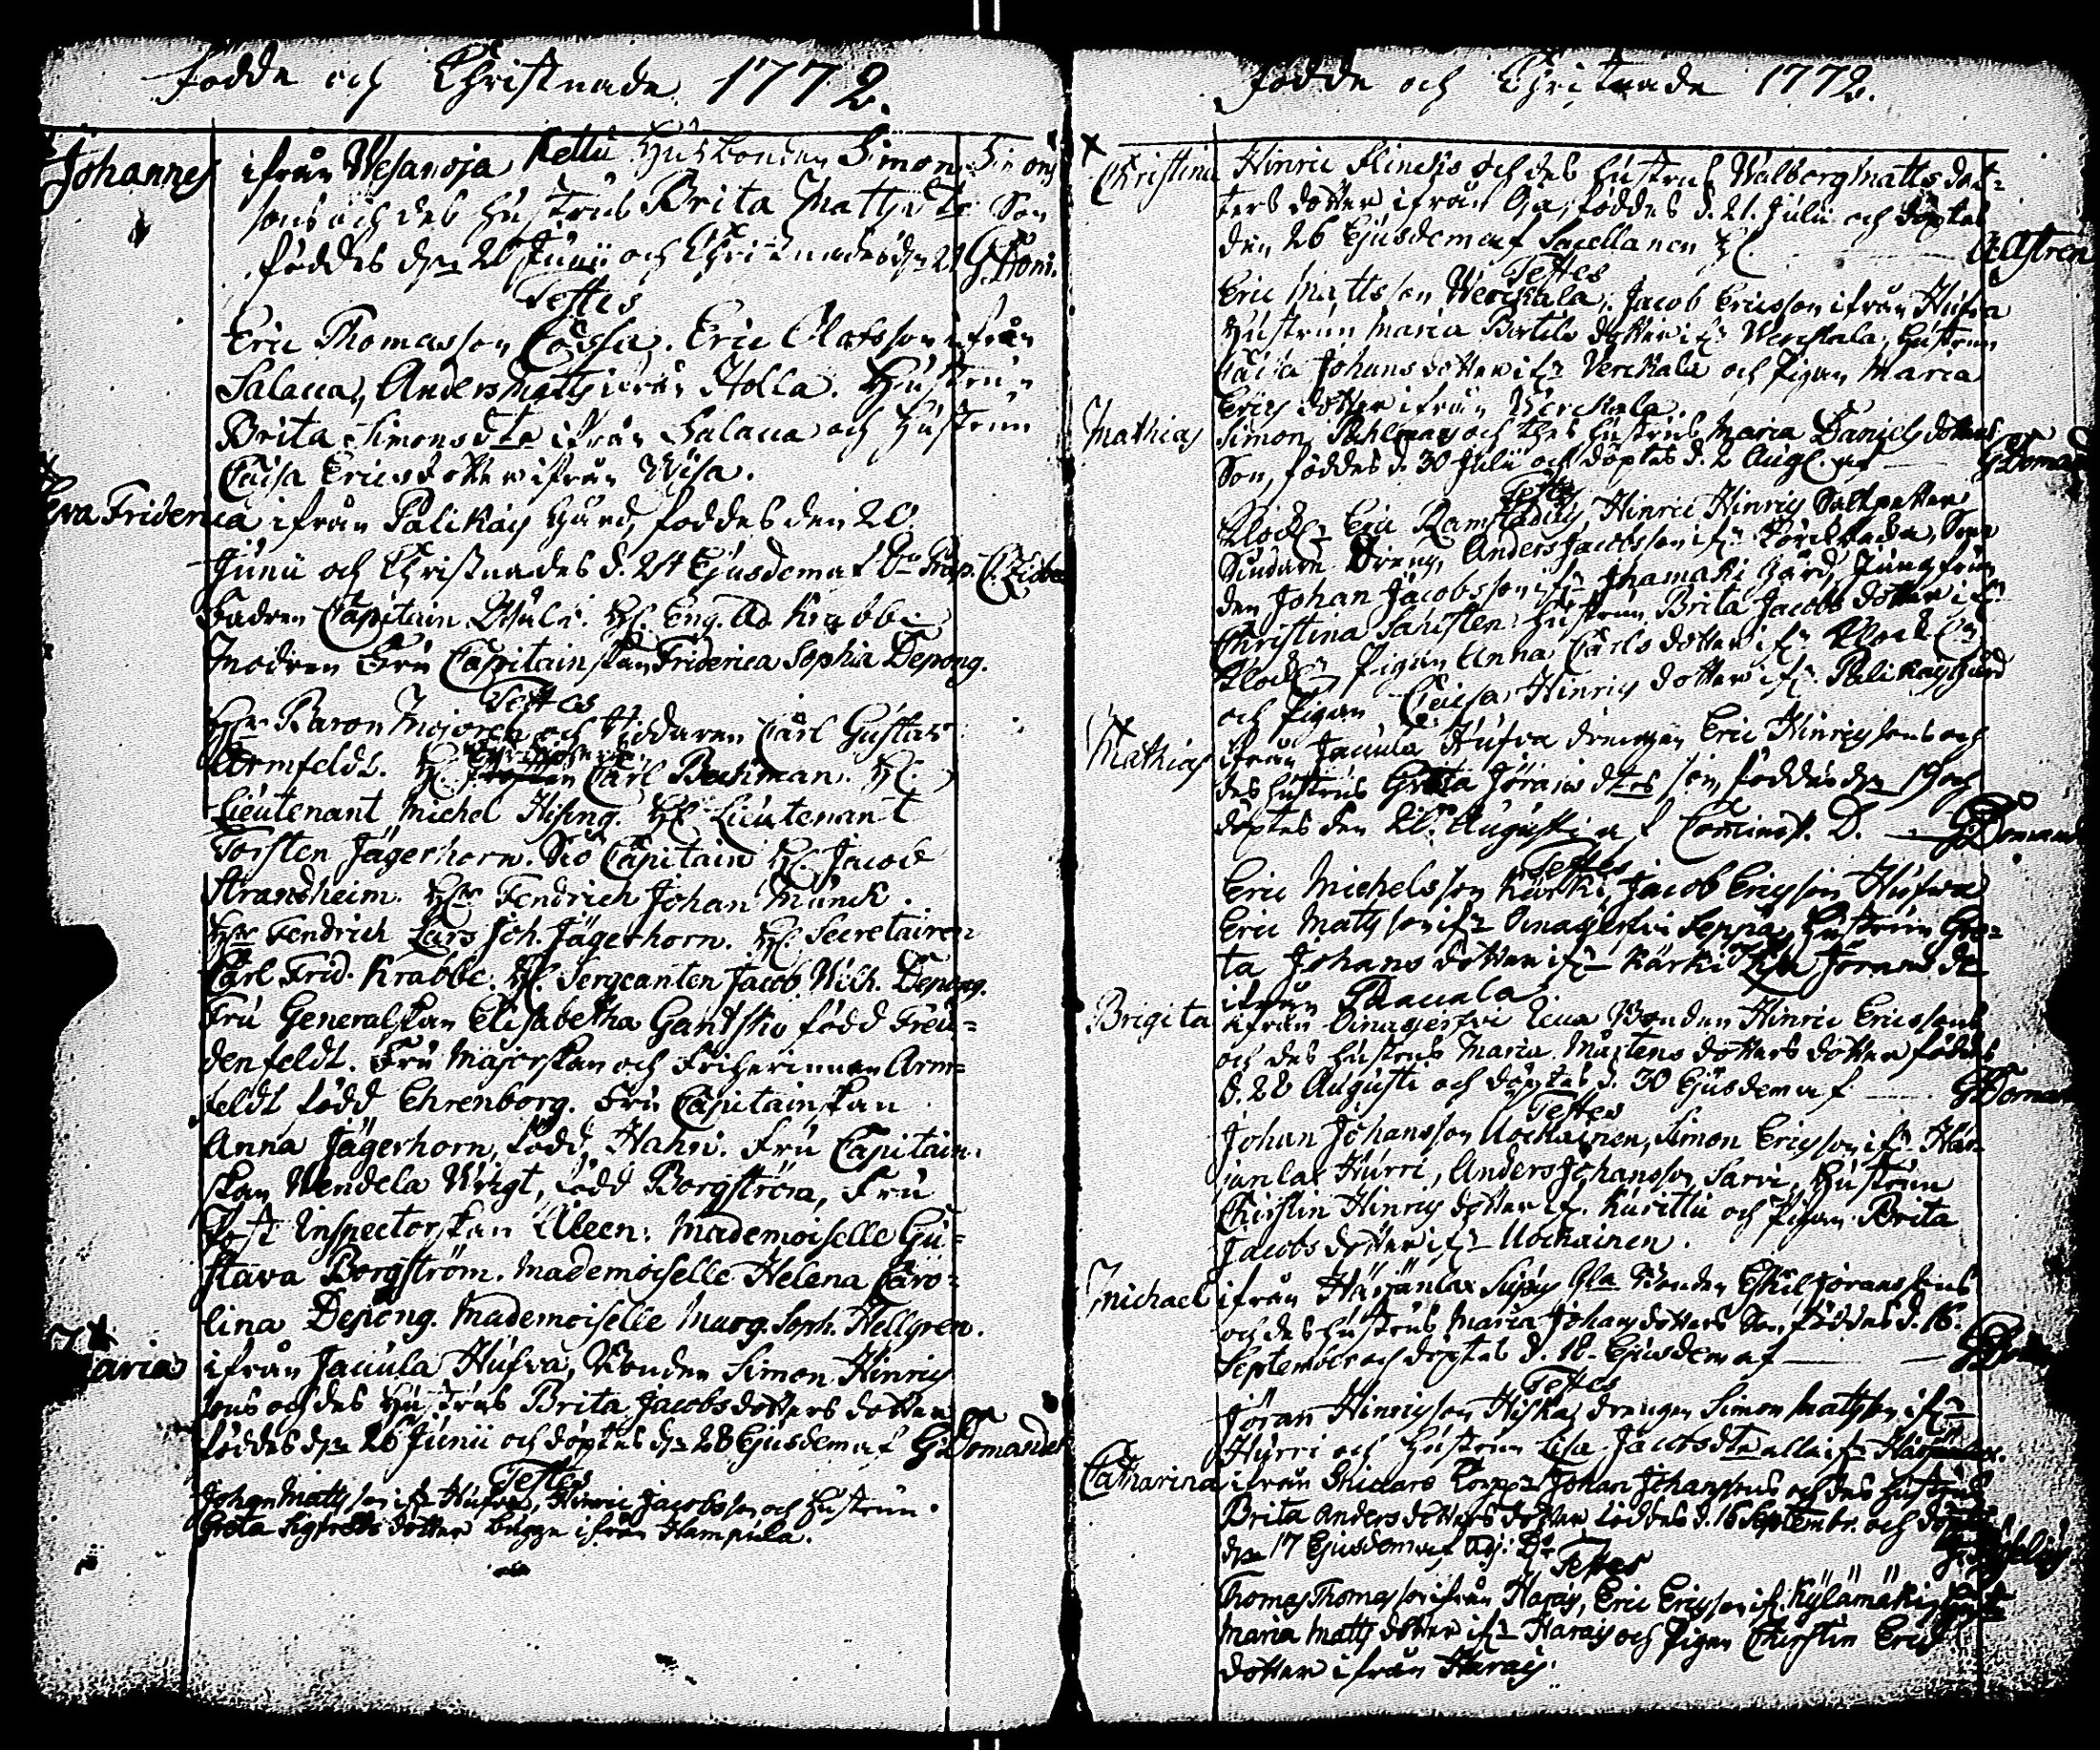 Födde och Christnade 1772.
Johannes ifrån Wesanoja Kettu Husbonden Simon Simons
sons och des hustrus Brita Matts dtr Son
föddes dn 20 Junii och Christnades dn 21 G. Dom.
Testes
Eric Thomasson Eric Olofsson ifrån
Salacca, Anders Matts ifrån Holla. Hustrun
Brita Simonsdtr ifrån Salacca och Hustrun
Caisa Ericsdotter ifrån Wisa.
Eva Friderica ifrån Palikais Gård, foddes den 20.
Junii och Christnades d. 24 Ejusdem af Dn Præp.
Fadren Capitain H. Eng. Ad Krabbe
Modren Fru Capitainskan Friderica Sophia Depong.
Testes
Hr Baron Majoren och Riddaren Carl Gustaf
Armfeldt. H. Carl Beckman. H.
Lieutenant Michel Hising. H. Lieutenant
Torsten Jägerhorn. Siö Capitain H. Jacob
Strandheim. Hr Fendrich Johan Munck.
Hr Fendrich Lars Joh. Jägerhorn. H. Secretairen
Carl Frid. Krabbe. H. Sergeanten Jacob Wilh. Depong.
Fru Generalskan Elisabetha född Freu=
denfeldt. Fru Majorskan och Friherinnan Arm=
feldt född Ehrenborg. Fru Capitainskan
Anna Jägerhorn, född Hahn. Fru Capitain.
skan Wendela Wrigt, född Borgström, Fru
Post Inspectorskan Aleen. Mademoiselle Gu=
stava Borgström. Mademoiselle Helena Caro=
lina Depong. Mademoiselle Marg. Soph. Hellgren.
Maria ifrån Jacula Hufva, Bonden Simon Hinrics
sons och des hustrus Brita Jacobsdotters dotter
föddes dn 26 Junii och döptes dn 28 Ejusdem af G Domander
Testes
Johan Mattsson ifn Hufva, Hinric Jacobsson och Hustrun
Greta Sigfredsdotter ifrån Hampula.
Födde och Christnade 1772.
Christina Hinric Flincks och des hustrus Walborg Matts dot=
ters dotter ifrån Oja, föddes d. 21. Julii och döptes
den 26 Ejusdem af Sacellanen H. A. Astren
Testes
Eric Mattsson Werckala, Jacob Ericsson ifrån Hufva
Hustrun Maria Bertils dotter ifn Werckala, Hustrun
Caisa Johans dotter ifn Werckala och Pigan Maria
Erics dotter ifrån Werckala.
Mathias Simon och thes hustrus Maria Daniels dotters
Son, föddes d. 30 Julii och döptes d. 2 Aug. af G Domander
Testes
Klock. Eric Ramstadius, Hinric Hinrics Saltpetter
Siudare Dreng, Anders Jacobsson ifn
den Johan Jacobsson ifn Jnamaki Gård, Jungfrun
Christina Sahlsten Hustrun Brita Jacobs dotter ifn
Klock. Pigan Anna Carls dotter ifn
och Pigan Caisa Hinrics dotter ifn Palikais Gård
Mathias ifrån Jacula Hufva drengen Eric Hinricssons och
des hustrus Greta Jörans dtrs son, föddes dn 19 och
döptes den 20. Augusti af Comminist. D. G Domander
Testes
Eric Michelsson Kärki, Jacob Ericsson Hufva
Eric Mattsson ifn Oinasjerfvi Seppä, Hustrun Gre=
ta Johans dotter ifn Kärki Jörans dtr
ifrån Paacala.
Brigita ifrån Oinasjerfvi Bonden Hinric Ericssons
och des hustrus Maria Mårtens dotters dotter föddes
d. 28 Augusti och döptes d. 30 Ejusdem af G Domander
Testes
Johan Johansson Uockainen, Simon Ericsson ifn Här-
jänlax Hurri, Anders Johansson Sarvi, Hustrun
Christin Hinrics dotter ifn Kurittu och Pigan Brita
Jacobs dotter ifn Uockainen.
Michael ifrån Härjänlax Bonden Eskil Jöranssons
och des hustrus Maria Johans dotters Son föddes d. 16.
September och döptes d. 18. Ejusdem af
Testes
Jöran Hinricsson Hiska, drengen Simon Mattsson ifn
Hurri och Hustrun Lisa Jacobsdtr alla ifn Härjänlax.
Catharina ifrån Johan Johanssons och des hustrus
Brita Anders dotters dotter föddes d. 16 Septembr. och döptes
dn 17 Ejusdem af Adj: Dn
Testes
Thomas Thomasson ifrån Harais, Eric Ericsson ifn Kylämäki,
Maria Matts dotter ifn Harais och Pigan Christin Erics
dotter ifrån Harais.